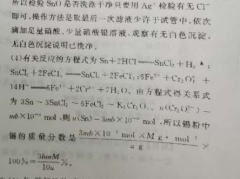 所以检验SnO是否洗涤干净只要用Ag⁺检验有无Cl⁻
即可,操作方法是取最后一次滤液少许于试管中,依次
滴加足量硝酸、少量硝酸银溶液,观察有无白色沉淀,
无白色沉淀说明已洗净。
(4)有关反应的方程式为Sn+2HCl══SnCl₂+H₂↑;
SnCl₂+2FeCl₃══SnCl₄+2FeCl₂;6Fe²⁺+Cr₂O₇²⁻+
14H⁺══6Fe³⁺+2Cr³⁺+7H₂O。由方程式得关系式
为3Sn～3SnCl₂～6FeCl₂～K₂Cr₂O₇,n(Cr₂O₇²⁻)=
mb×10⁻³ mol,则n(Sn)=3mb×10⁻³ mol,所以锡粉中
锡的质量分数是 3mb×10⁻³ mol×M g·mol⁻¹ / a g ×
100%=